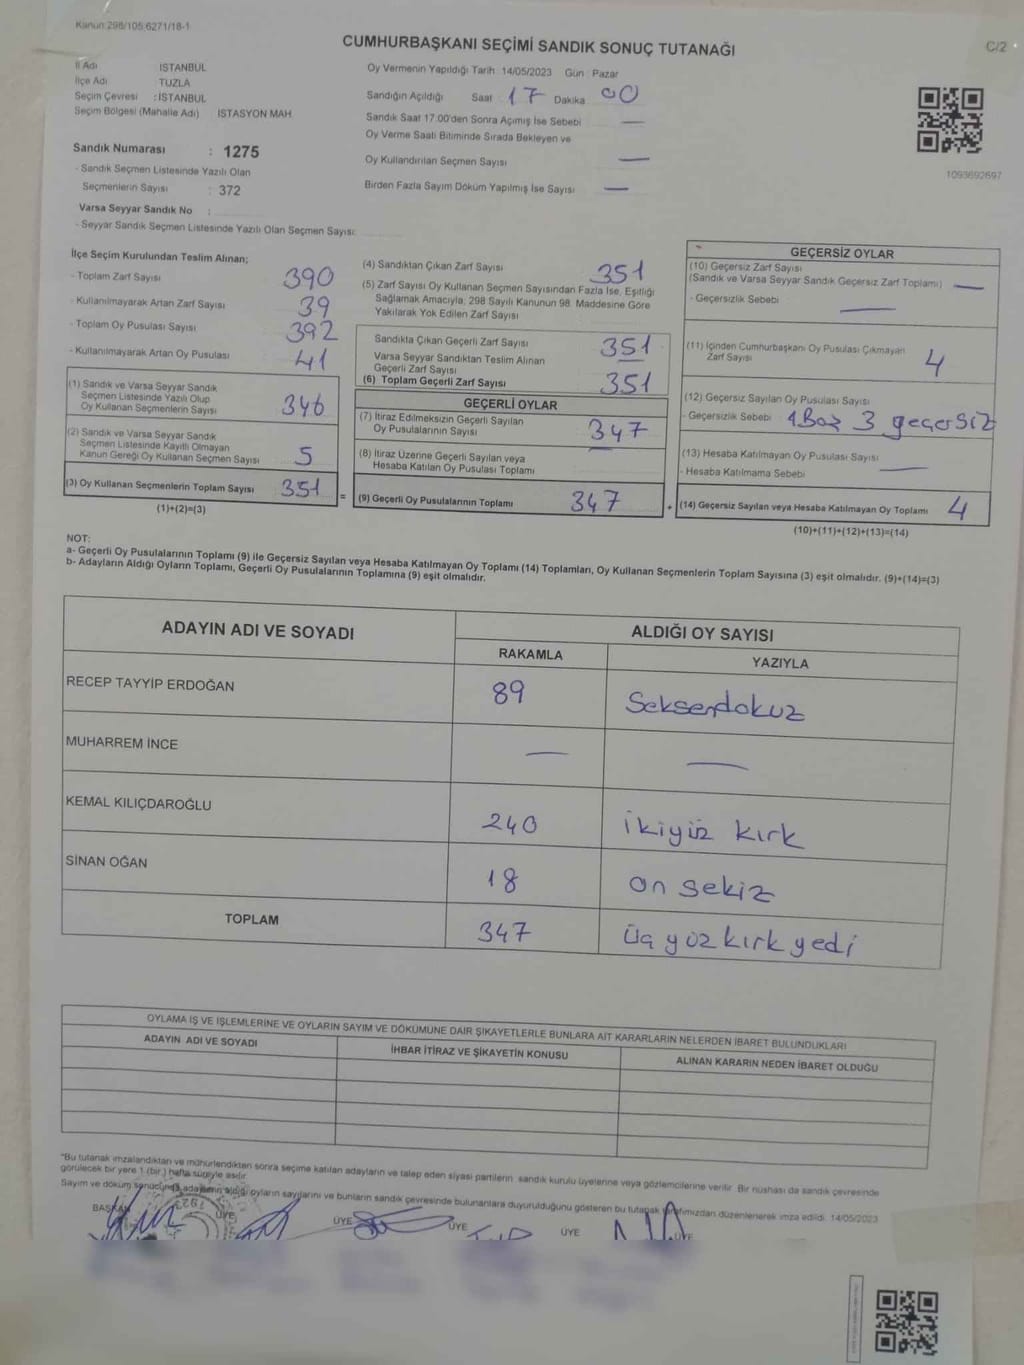 Kanun:298/105,6271/18-1
CUMHURBAŞKANI SEÇİMİ SANDIK SONUÇ TUTANAĞI
C/2
İl Adı İSTANBUL
İlçe Adı TUZLA
Seçim Çevresi : İSTANBUL
Seçim Bölgesi (Mahalle Adı) İSTASYON MAH
Sandık Numarası : 1275
- Sandık Seçmen Listesinde Yazılı Olan
Seçmenlerin Sayısı : 372
Varsa Seyyar Sandık No :
- Seyyar Sandık Seçmen Listesinde Yazılı Olan Seçmen Sayısı:
Oy Vermenin Yapıldığı Tarih :14/05/2023 Gün : Pazar
Sandığın Açıldığı Saat 17 Dakika 00
Sandık Saat 17:00'den Sonra Açımış İse Sebebi —
Oy Verme Saati Bitiminde Sırada Bekleyen ve
Oy Kullandırılan Seçmen Sayısı —
Birden Fazla Sayım Döküm Yapılmış İse Sayısı —
1093692697
İlçe Seçim Kurulundan Teslim Alınan;
- Toplam Zarf Sayısı 390
- Kullanılmayarak Artan Zarf Sayısı 39
- Toplam Oy Pusulası Sayısı 392
- Kullanılmayarak Artan Oy Pusulası 41
(1) Sandık ve Varsa Seyyar Sandık
Seçmen Listesinde Yazılı Olup
Oy Kullanan Seçmenlerin Sayısı 346
(2) Sandık ve Varsa Seyyar Sandık
Seçmen Listesinde Kayıtlı Olmayan
Kanun Gereği Oy Kullanan Seçmen Sayısı 5
(3) Oy Kullanan Seçmenlerin Toplam Sayısı 351
(1)+(2)=(3)
=
(4) Sandıktan Çıkan Zarf Sayısı 351
(5) Zarf Sayısı Oy Kullanan Seçmen Sayısından Fazla İse, Eşitliği
Sağlamak Amacıyla, 298 Sayılı Kanunun 98. Maddesine Göre
Yakılarak Yok Edilen Zarf Sayısı
Sandıkta Çıkan Geçerli Zarf Sayısı 351
Varsa Seyyar Sandıktan Teslim Alınan
Geçerli Zarf Sayısı —
(6) Toplam Geçerli Zarf Sayısı 351
GEÇERLİ OYLAR
(7) İtiraz Edilmeksizin Geçerli Sayılan
Oy Pusulalarının Sayısı 347
(8) İtiraz Üzerine Geçerli Sayılan veya
Hesaba Katılan Oy Pusulası Toplamı —
(9) Geçerli Oy Pusulalarının Toplamı 347
+
GEÇERSİZ OYLAR
(10) Geçersiz Zarf Sayısı
(Sandık ve Varsa Seyyar Sandık Geçersiz Zarf Toplamı) —
- Geçersizlik Sebebi —
(11) İçinden Cumhurbaşkanı Oy Pusulası Çıkmayan
Zarf Sayısı 4
(12) Geçersiz Sayılan Oy Pusulası Sayısı
- Geçersizlik Sebebi 1 Boş 3 geçersiz
(13) Hesaba Katılmayan Oy Pusulası Sayısı —
- Hesaba Katılmama Sebebi
(14) Geçersiz Sayılan veya Hesaba Katılmayan Oy Toplamı 4
(10)+(11)+(12)+(13)=(14)
NOT:
a- Geçerli Oy Pusulalarının Toplamı (9) ile Geçersiz Sayılan veya Hesaba Katılmayan Oy Toplamı (14) Toplamları, Oy Kullanan Seçmenlerin Toplam Sayısına (3) eşit olmalıdır. (9)+(14)=(3)
b- Adayların Aldığı Oyların Toplamı, Geçerli Oy Pusulalarının Toplamına (9) eşit olmalıdır.
ADAYIN ADI VE SOYADI ALDIĞI OY SAYISI
RAKAMLA YAZIYLA
RECEP TAYYİP ERDOĞAN 89 Seksendokuz
MUHARREM İNCE — —
KEMAL KILIÇDAROĞLU 240 ikiyüz kırk
SİNAN OĞAN 18 on sekiz
TOPLAM 347 üç yüz kırk yedi
OYLAMA İŞ VE İŞLEMLERİNE VE OYLARIN SAYIM VE DÖKÜMÜNE DAİR ŞİKAYETLERLE BUNLARA AİT KARARLARIN NELERDEN İBARET BULUNDUKLARI
ADAYIN ADI VE SOYADI İHBAR İTİRAZ VE ŞİKAYETİN KONUSU ALINAN KARARIN NEDEN İBARET OLDUĞU
"Bu tutanak imzalandıktan ve mühürlendikten sonra seçime katılan adayların ve talep eden siyasi partilerin sandık kurulu üyelerine veya gözlemcilerine verilir. Bir nüshası da sandık çevresinde
görülecek bir yere 1 (bir) hafta süreyle asılır.
Sayım ve döküm sonucunda adayların aldığı oyların sayılarını ve bunların sandık çevresinde bulunanlara duyurulduğunu gösteren bu tutanak tarafımızdan düzenlenerek imza edildi. 14/05/2023
BAŞKAN ÜYE ÜYE ÜYE ÜYE ÜYE